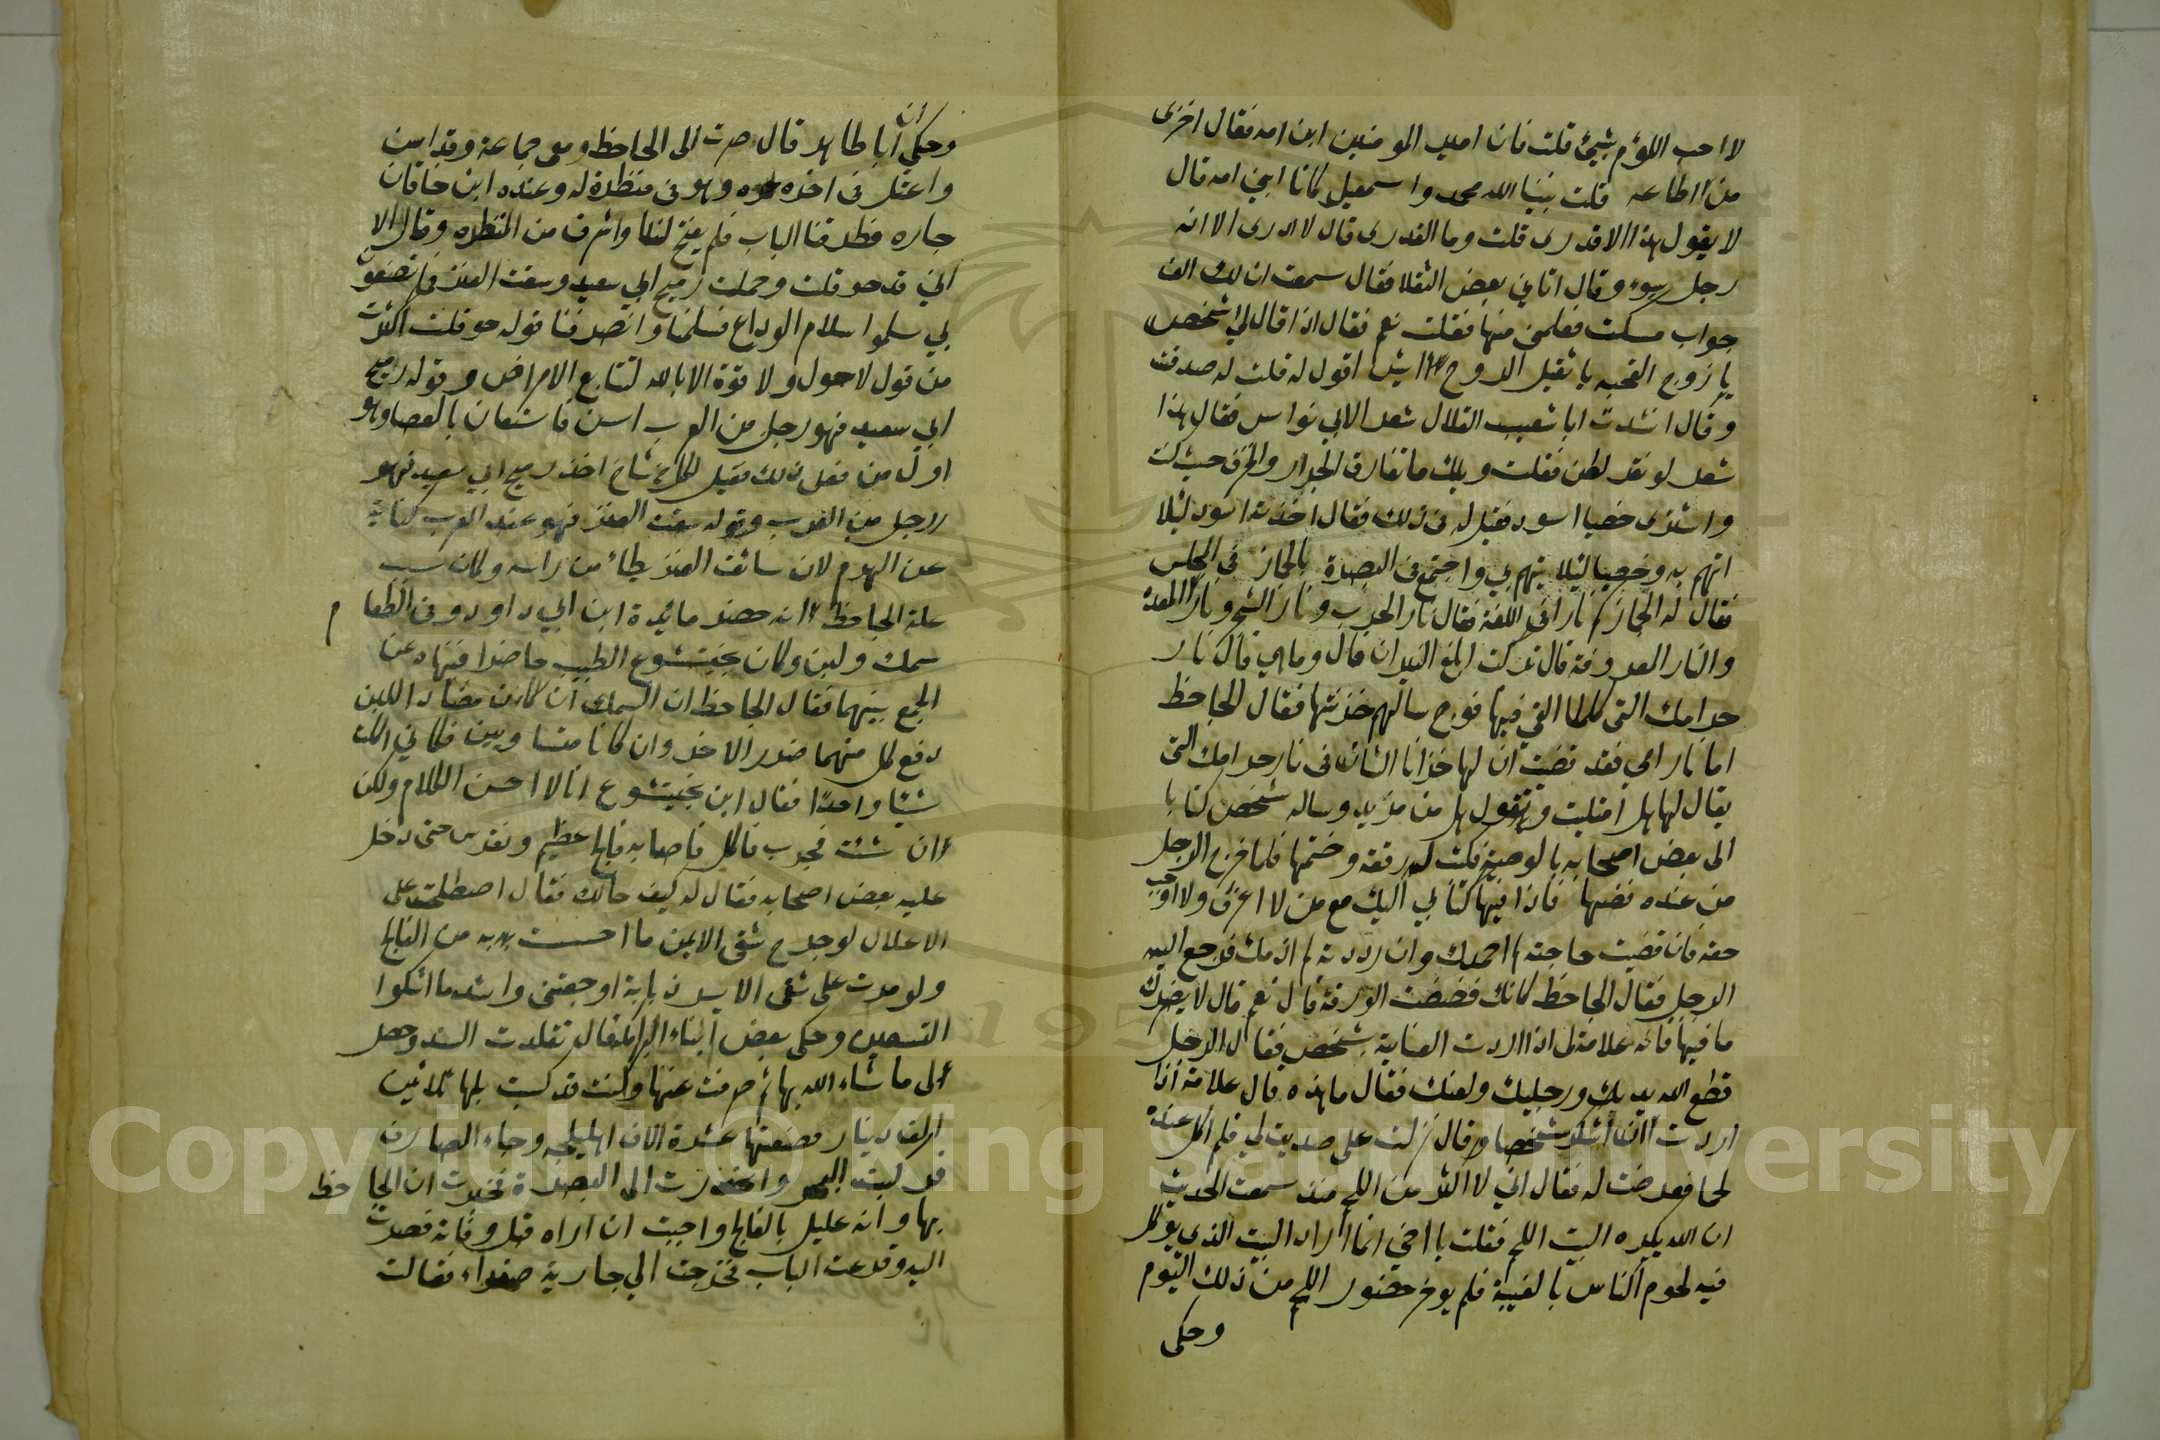 لا احب اللؤم بشيئ قلت فان امير المومنين ابن امه فقال اخزى
من اطاعه قلت نبينا الله محمد واسمعيل كانا ابني امه قال
لا يقول هذا الا قدرى قلت وما القدرى قال لا ادرى الا انه
رجل سوء وقال اتاني بعض الثقلا فقال سمعت ان لك الف
جواب مسكت فعلمنى منها فقلت نعم فقال اذا قال لي شخص
يا زوج القحبه يا ثقيل الروح ايش اقول له قلت له صدقت
وقال انشدت ابا شعيب القلال شعر الابي نواس فقال هذا
شعر لو نقر لطن فقلت ويلك ما تفارق الجرار والخزف حيث كنت
واشترى خصيا اسود فقيل له فى ذلك فقال اخذته اسود ليلا
اتهم به وخصيا ليلا يتهم بي واجتمع فى البصرة بالجماز فى المجلس
فقال له الجماز كم نار فى اللغة فقال نار الحرب ونار الشح ونار المعدة
والنار المعروفة قال تركت ابلغ النيران قال وما هي قال نار
حر امك التى كلما القي فيها فوج سالهم خزنتها فقال الجاحظ
اما نار امي فقد قضيت ان لها خزانا الشان فى نار حر امك التى
يقال لها هل امتليت وتقول هل من مزيد وساله شخص كتابا
الى بعض اصحابه بالوصية فكتب له رقعة وختمها فلما خرج الرجل
من عنده فضها فاذا فيها كتابي اليك مع من لا اعرف ولا اوجب
حقه فان قضيت حاجته لم احمدك وان رددته لم اذمك فرجع اليه
الرجل فقال الجاحظ كانك فضضت الورقة قال نعم قال لا يضرك
ما فيها فانه علامة لى اذا اردت العناية بشخص فقال الرجل
قطع الله يديك ورجليك ولعنك فقال ما هذه قال علامة انا
اردت ان اشكر شخصا وقال نزلت على صديق لي فلم اكل عنده
لحما فعرضت له فقال اني لا اكثر من اللحم منذ سمعت الحديث
ان الله يكره البيت اللحم فقلت يا اخي انما اراد البيت الذى يوكل
فيه لحوم الناس بالغيبة فلم يوخر حضور اللحم من ذلك اليوم
وحكى
وحكى ان ابا طاهر قال صرت الى الجاحظ ومعى جماعة وقد اسن
واعتل فى اخر عمره وهو فى منظرة له وعنده ابن خاقان
جاره فطرقنا الباب فلم يفتح لنا واشرف من المنظره وقال الا
اني قد حوقلت وحملت رميح ابي سعيد وسقت العنز فما تصنعون
بي سلموا سلام الوداع فسلمنا وانصرفنا قوله حوقلت اكثرت
من قول لا حول ولا قوة الا بالله لتتابع الامراض وقوله رميح
ابي سعيد فهو رجل من العرب اسن فاستعان بالعصا وهو
اول من فعل ذلك فقيل لكل من شاخ اخذ رميح ابي سعيد فهو
رجل من العرب وقوله سقت العنز فهو عند العرب كناية
عن الهرم لان سائق العنز يطائ من راسه وكان سبب
علة الجاحظ انه حضر مائيدة ابن ابي داود وفى الطعام
سمك ولبن وكان بختيشوع الطبيب حاضرا فنهاه عن
الجمع بينهما فقال الجاحظ ان السمك ان كان مضاد اللبن
دفع كل منهما ضرر الاخر وان كانا متساويين فكاني اكلت
شيئا واحدا فقال ابن بختيشوع انا لا احسن الكلام ولكن
ان شئت فجرب فاكل فاصابه فالج عظيم ونقرس حتى دخل
عليه بعض اصحابه فقال له كيف حالك فقال اصطلحت على
الاعلال لو جرح شقى الايمن ما احسست به من الفالج
ولو مرت على شقى الايسر ذبابة اوجعتنى واشد ما اشكوا
التسعين وحكى بعض ابناء البرامكة قال تقلدت السند وحصل
لى ما شاء الله بها ثم صرفت عنها وكنت قد كسبت بها ثلاثين
الف دينار فصنعتها عشرة الاف اهليلجة وجاء الصارف
فركبت البحر وانحدرت الى البصرة فخبرت ان الجاحظ
بها وانه عليل بالفالج واحببت ان اراه قبل وفاته فصرت
اليه وقرعت الباب فخرجت الي جارية صفراء فقالت
Copyright © King Saud University
195